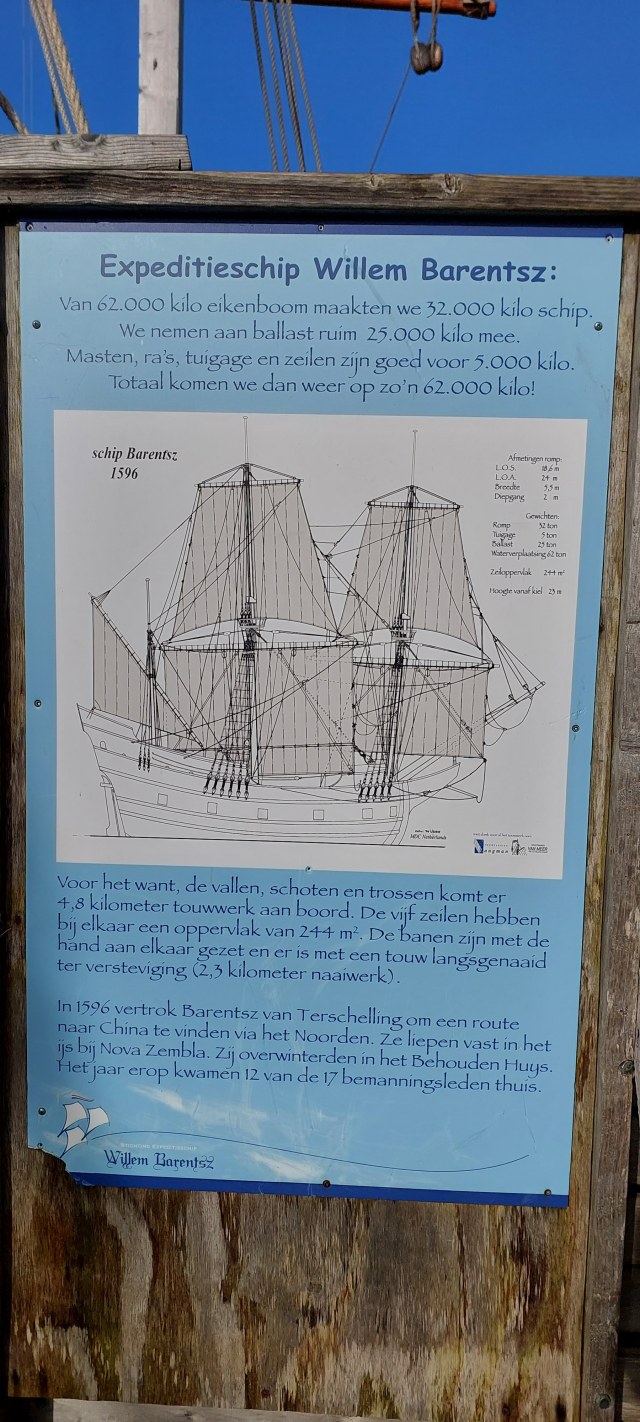 Expeditieschip Willem Barentsz:
Van 62.000 kilo eikenboom maakten we 32.000 kilo schip.
We nemen aan ballast ruim 25.000 kilo mee.
Masten, ra's, tuigage en zeilen zijn goed voor 5.000 kilo.
Totaal komen we dan weer op zo'n 62.000 kilo!
schip Barentsz
1596
Afmetingen romp:
L.O.S. 18,6 m
L.O.A. 24 m
Breedte 5,5 m
Diepgang 2 m
Gewichten:
Romp 32 ton
Tuigage 5 ton
Ballast 25 ton
Waterverplaatsing 62 ton
Zeiloppervlak 244 m²
Hoogte vanaf kiel 23 m
MDC Netherlands
Voor het want, de vallen, schoten en trossen komt er
4,8 kilometer touwwerk aan boord. De vijf zeilen hebben
bij elkaar een oppervlak van 244 m². De banen zijn met de
hand aan elkaar gezet en er is met een touw langsgenaaid
ter versteviging (2,3 kilometer naaiwerk).
In 1596 vertrok Barentsz van Terschelling om een route
naar China te vinden via het Noorden. Ze liepen vast in het
ijs bij Nova Zembla. Zij overwinterden in het Behouden Huys.
Het jaar erop kwamen 12 van de 17 bemanningsleden thuis.
Stichting Expeditieschip
Willem Barentsz